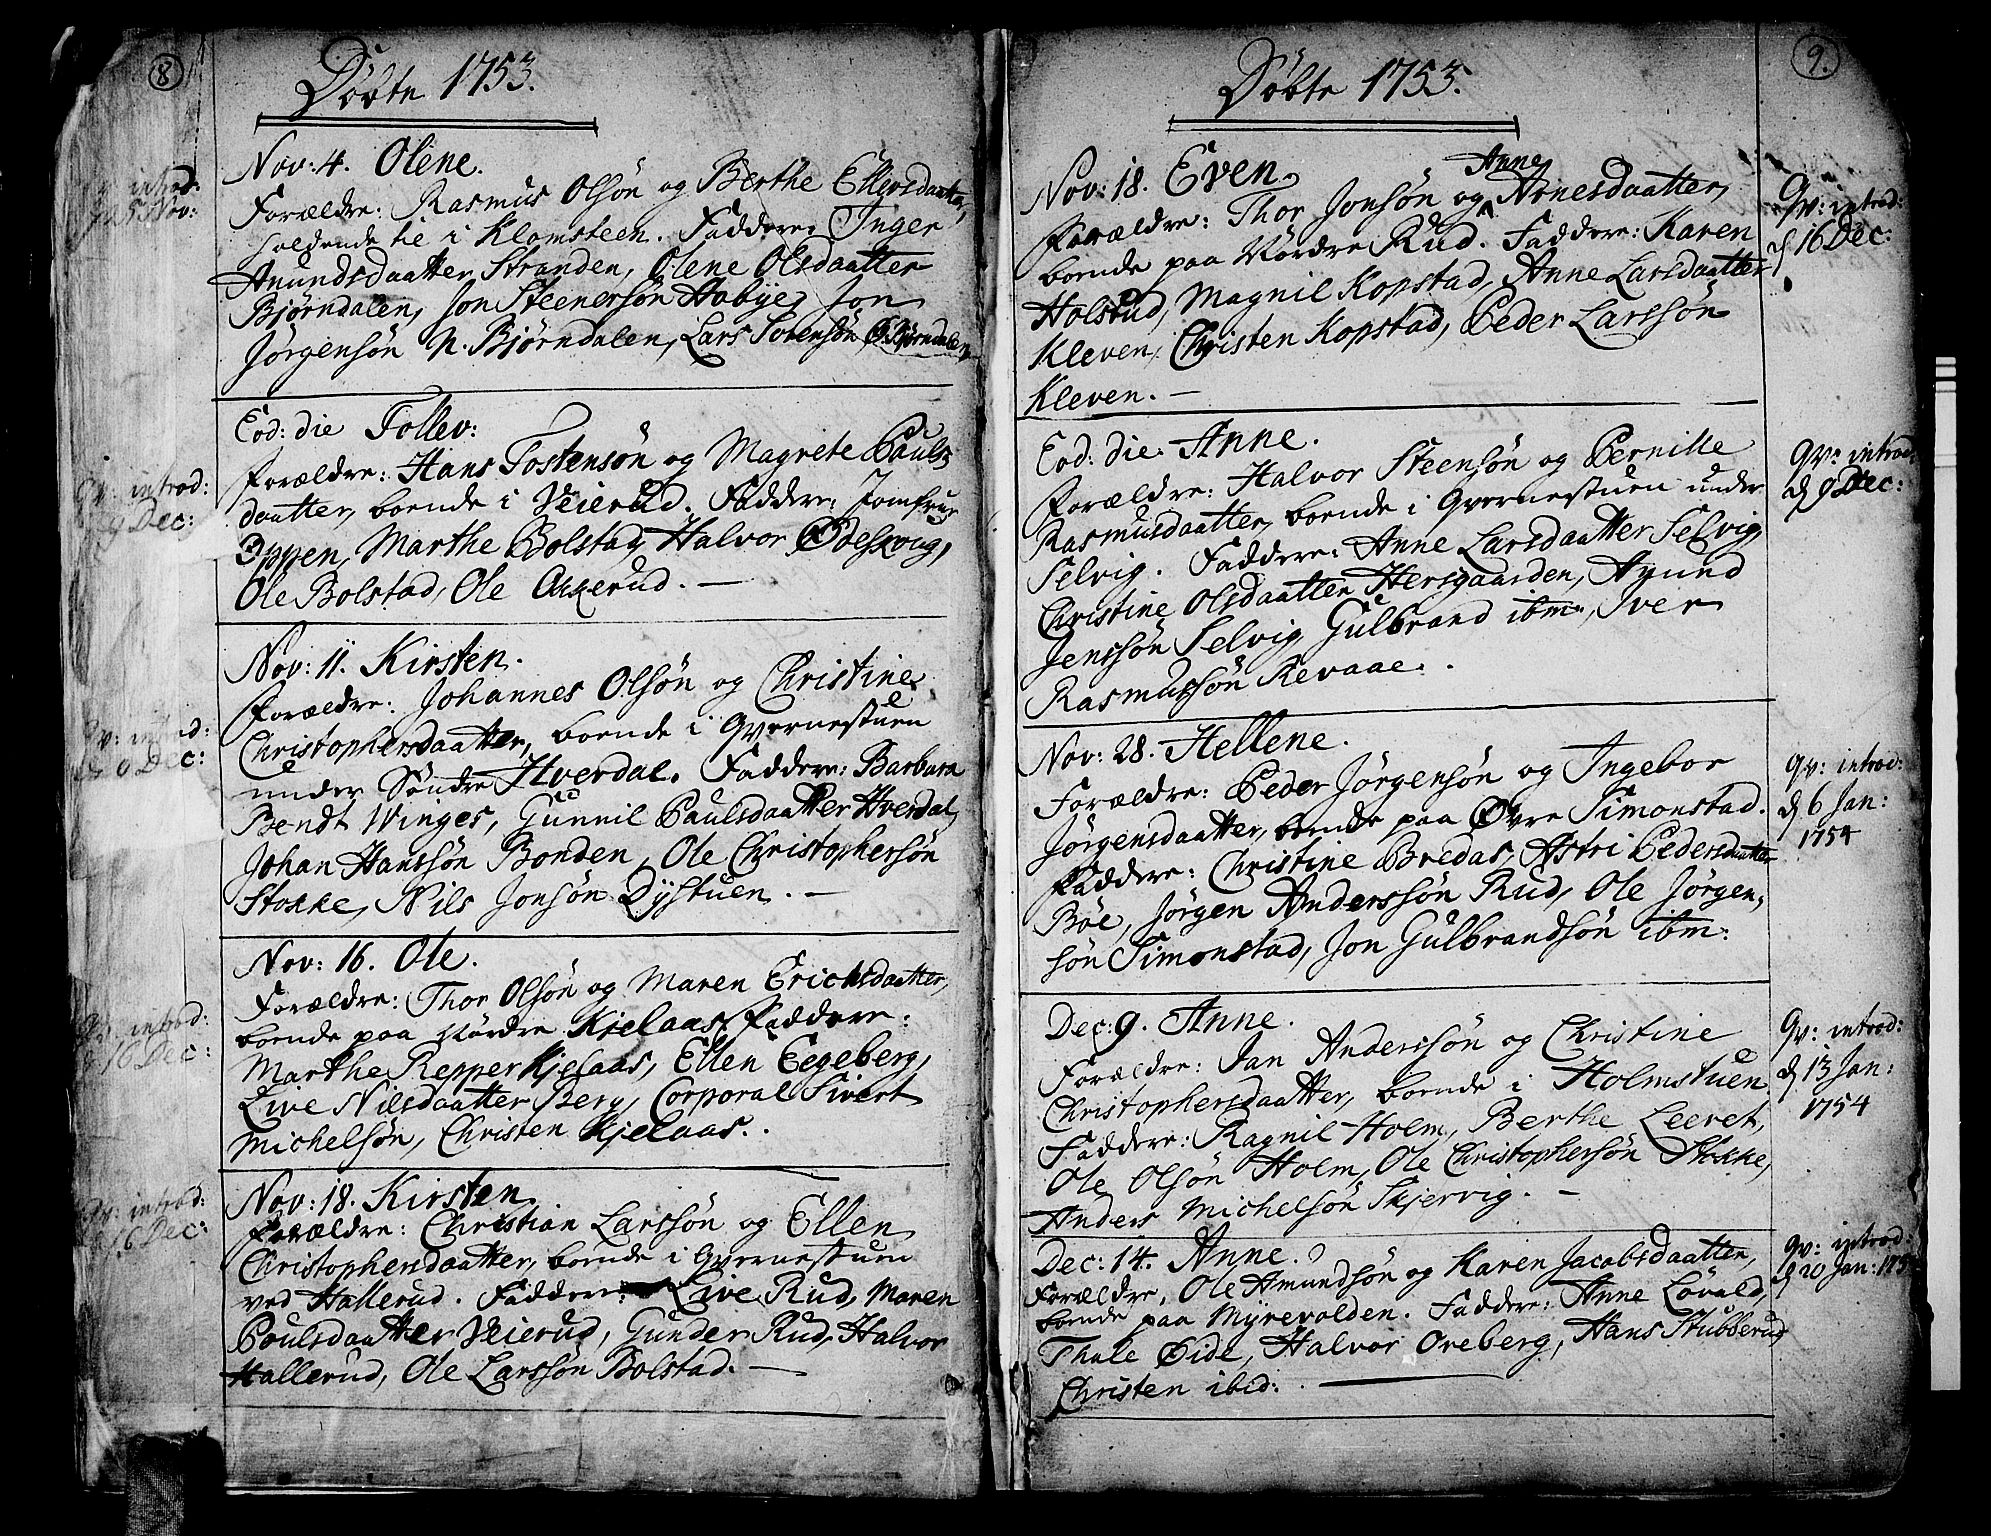 8
Döbte 1753.
Nov: 4. Olene.
Forældre: Rasmus Olsön og Berthe Ellevsdaatter,
holdende til i Klomsteen. Faddere: Inger
Anundsdaatter Stranden, Olene Olsdaatter
Bjørndalen, Jon Steenersön Habye, Jon
Jörgensön N. Bjørndalen, Lars Sorensön Ø. Bjørndalen
introd:
25 Nov:
Eod: die Tollev:
Forældre: Hans Tostensön og Magrete Pauls
daatter, boende i Veierud. Faddere: Jomfrue
Eppen, Marthe Bolstad, Halvor Ødesvug,
Ole Bolstad, Ole Akkerud. —
Qv: introd:
9 Dec:
Nov: 11. Kirsten.
Forældre: Johannes Olsön og Christine
Christophersdaatter, boende i Qvernestuen
under Söndre Hverdal. Faddere: Barbara
Bendt Winges, Gunnil Paulsdaatter Hverdal,
Johan Hanssön Bonden, Ole Christophersön
Stokke, Nils Jonsön Dystuen. —
Qv: introd:
6 Dec:
Nov: 16. Ole.
Forældre: Thor Olsön og Maren Erichsdaatter,
boende paa Nördre Kjelaas. Faddere:
Marthe Repper Kjelaas, Ellen Eegeberg,
Live Nilsdaatter Berg, Corporal Sivert
Michelsön, Christen Kjelaas.
Qv: introd:
16 Dec:
Nov: 18. Kirsten.
Forældre: Christian Larssön og Ellen
Christophersdaatter, boende i Qvernestuen
ved Hallerud. Faddere: Live Rud, Maren
Poulsdaatter Veierud, Gunder Rud, Halvor
Hallerud, Ole Larssön Bolstad. —
Qv: introd:
16 Dec:
9.
Döbte 1753.
Nov: 18. Even.
Anne
Forældre: Thor Jonsön og Arnesdaatter,
boende paa Nördre Rud. Faddere: Karen
Holstud, Magnil Kopstad, Anne Larsdaatter
Kleven, Christen Kopstad, Peder Larssön
Kleven. —
Qv: introd:
d 16 Dec:
Eod: die Anne.
Forældre: Halvor Steensön og Pernille
Rasmusdaatter, boende i Qvernestuen under
Selvig. Faddere: Anne Larsdaatter Selvig,
Christine Olsdaatter Hersgaarden, Anund
Jenssön Selvig, Gulbrand ibm, Iver
Rasmussön Revaae.
Qv: introd:
d 9 Dec:
Nov: 28. Hellene.
Forældre: Peder Jörgensön og Ingebor
Jörgensdaatter, boende paa Øvre Simonstad.
Faddere: Christine Bredas, Astri Pedersdaatter
Böe, Jörgen Anderssön Rud, Ole Jörgen,
sön Simonstad, Jon Gulbrandsön ibm:
Qv: introd:
d 6 Jan:
1754
Dec: 9. Anne.
Forældre: Jan Anderssön og Christine
Christophersdaatter, boende i Holmstuen
Faddere: Ragnil Holm, Berthe Leeret,
Ole Olsön Holm, Ole Christophersön Stokke,
Anders Michelsön Skjervig. —
Qv: introd:
d 13 Jan:
1754
Dec: 14. Anne.
Forældre, Ole Amundsön og Karen Jacobsdaatter,
boende paa Myrevolden. Faddere: Anne Lövald,
Thale Øide, Halvor Oreberg, Hans Stubberud,
Christen ibid: —
Qv: introd:
d 20 Jan: 175